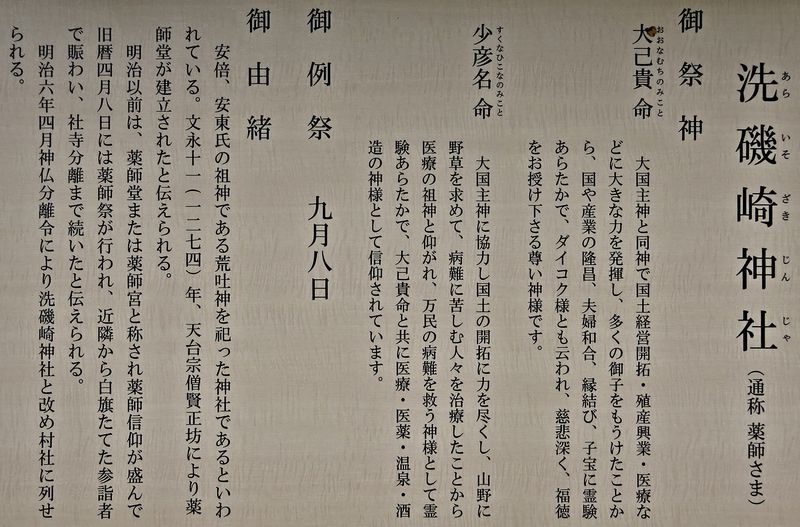 洗磯崎神社（通称 薬師さま）
あら いそ ざき じん じゃ
御祭神
大己貴命
おおなむちのみこと
大国主神と同神で国土経営開拓・殖産興業・医療な
どに大きな力を発揮し、多くの御子をもうけたことか
ら、国や産業の隆昌、夫婦和合、縁結び、子宝に霊験
あらたかで、ダイコク様とも云われ、慈悲深く、福徳
をお授け下さる尊い神様です。
少彦名命
すくなひこなのみこと
大国主神に協力し国土の開拓に力を尽くし、山野に
野草を求めて、病難に苦しむ人々を治療したことから
医療の祖神と仰がれ、万民の病難を救う神様として霊
験あらたかで、大己貴命と共に医療・医薬・温泉・酒
造の神様として信仰されています。
御例祭 九月八日
御由緒
安倍、安東氏の祖神である荒吐神を祀った神社であるといわ
れている。文永十一（一二七四）年、天台宗僧賢正坊により薬
師堂が建立されたと伝えられる。
明治以前は、薬師堂または薬師宮と称され薬師信仰が盛んで
旧暦四月八日には薬師祭が行われ、近隣から白旗たてた参詣者
で賑わい、社寺分離まで続いたと伝えられる。
明治六年四月神仏分離令により洗磯崎神社と改め村社に列せ
られる。